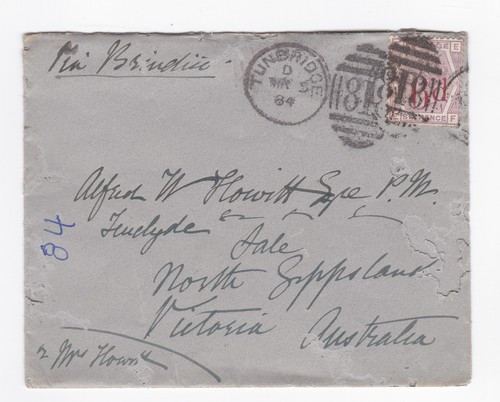 Via Brindisi
TUNBRIDGE
D
84
81
6d
PENCE
E
F
Alfred W Howitt Esqe P.M.
Sale
North Gippsland
Victoria Australia
84
Mrs Howitt